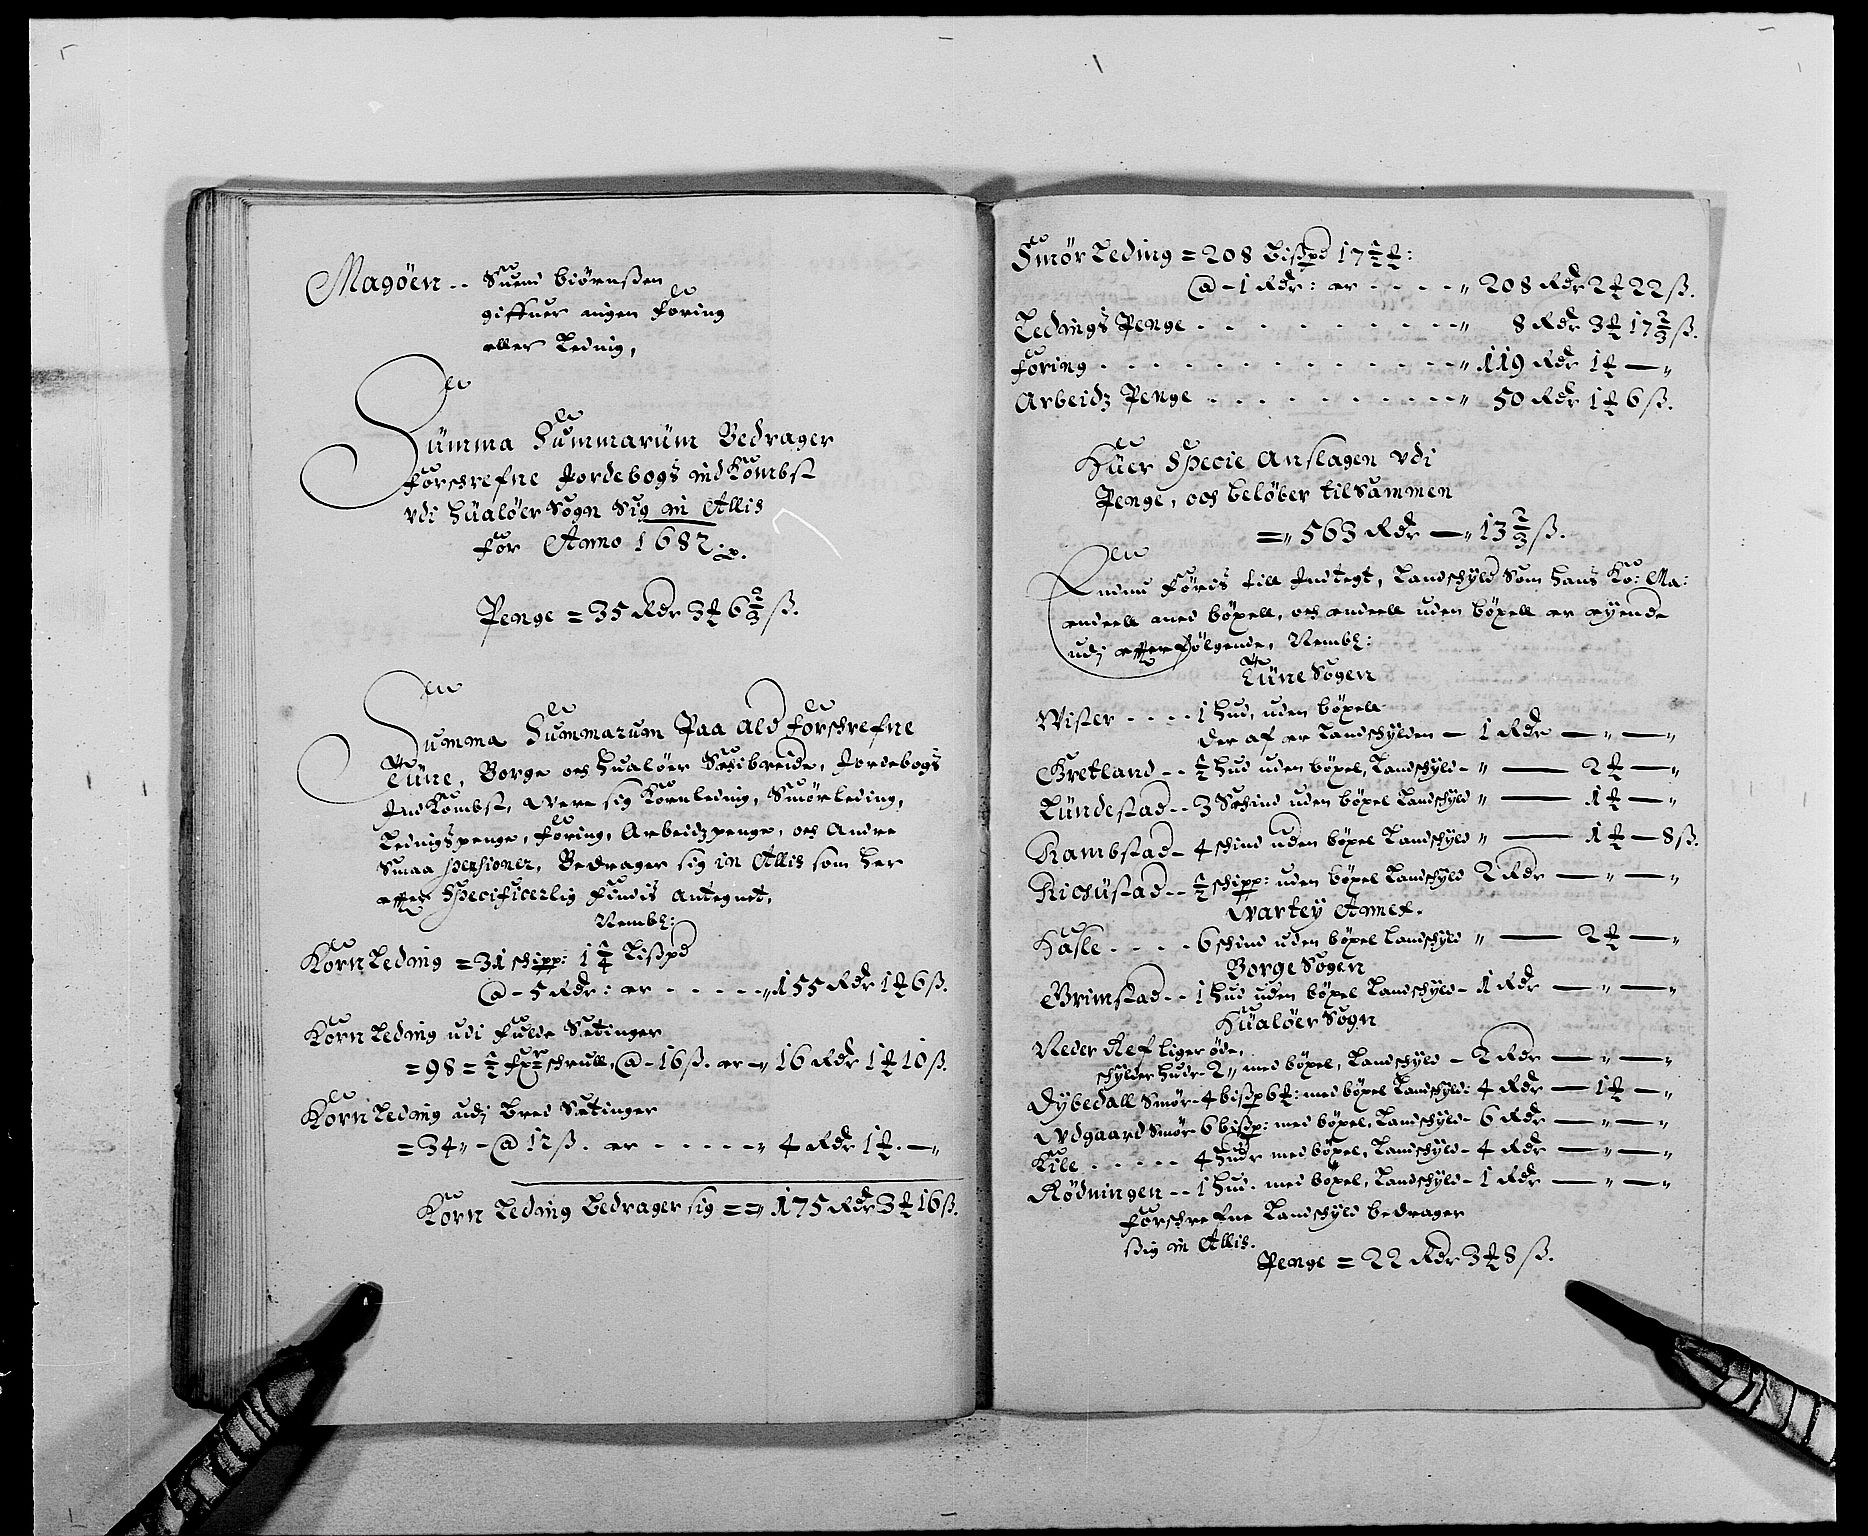 Magöen - - Suend biörnsen
giffuer ingen foring
eller Leding,
Summa Summarum Bedrager
forschrefne Jordebogs indKombst
vdi Hualöer Sogn Sig in Allis
for Anno 1682
Penge = 35 Rdr 3 ƭ 6 2/3 ß.
Summa Summarum Paa ald forschrefne
Tüne, Borge och Hualöer Schibreide, Jordebogs
IndKombst, Were sig Kornleding, Smörleding,
Ledingspenge, foring, Arbeidzpenge, och Andre
Smaa pensioner, Bedrager sig in Allis som her
effter Specificerlig findis Antegnet,
Nembl:
Korn Leding = 31 schipp: 1 1/4 Lißpd
@ - 5 Rdr: er - - - - - „ 155 Rdr 1 ƭ 6 ß.
Korn Leding udi fulde Setinger
= 98 = 1/2 schrull, @ - 16 ß. er - „ 16 Rdr 1 ƭ 10 ß.
Korn Leding udj Bred Setinger
= 34 „ - @ 12 ß. er - - - - - „ 4 Rdr 1 ƭ. — „
Korn Leding bedrager sig = = „ 175 Rdr 3 ƭ 16 ß.
Smör Leding = 208 bißpd 17 1/2 ƭ:
@ - 1 Rdr: er - - - - „ 208 Rdr 2 ƭ 22 ß.
Ledings Penge - - - - - - - - „ 8 Rdr 3 ƭ 17 2/3 ß.
foring - - - - - - - - - - - - „ 119 Rdr 1 ƭ — „
Arbeidz Penge - - - - - - - - „ 50 Rdr 1 ƭ 6 ß.
Huer Specie Anslagen vdi
Penge, och beløber tilsammen
= „ 563 Rdr — „ 13 2/3 ß.
Endnu föris till Indtegt, Landschyld Som hans Ko: Ma:
endeell med böxell, och endeell uden böxell er eyende
udj effterfölgende, Nembl:
Tüne Sogen
Wister - - - - 1 Hud, uden böxell
der af er Landschylden — 1 Rdr — „ — „
Gretland - - 1/2 Hud uden böxel, Landschyld - „ — 2 ƭ — „
Lündestad - - 3 Schind uden böxel Landschyld „ — 1 ƭ — „
Rambstad - 4 schind uden böxel Landschyld „ — 1 ƭ — 8 ß.
Richüstad - - 1/2 schipp: uden böxel Landschyld 2 Rdr — „ — „
Wartey Annex.
Hasle - - - - 6 schind uden böxel Landschyld „ — 2 ƭ — „
Borge Sogen
Grimstad - - 1 Hud uden böxel Landschyld - 1 Rdr — „ — „
Hüalöer Sogn
Neder Ref liger öde,
schylder Hudr - 2 „ med böxel, Landschyld - 2 Rdr — „ — „
Dybedall Smör - 4 bißp 6 ƭ: med böxel Landschyld - 4 Rdr — 1 ƭ — „
Vdgaard Smör 6 bißp: med böxel, Landschyld - 6 Rdr — „ — „
Kile - - - - - 4 Hudr med böxel, Landschyld - 4 Rdr — „ — „
Rödningen - - 1 Hud. med böxel, Landschyld - 1 Rdr — „ — „
forschrefne Landschyld bedrager
sig in Allis.
Penge = 22 Rdr 3 ƭ 8 ß.